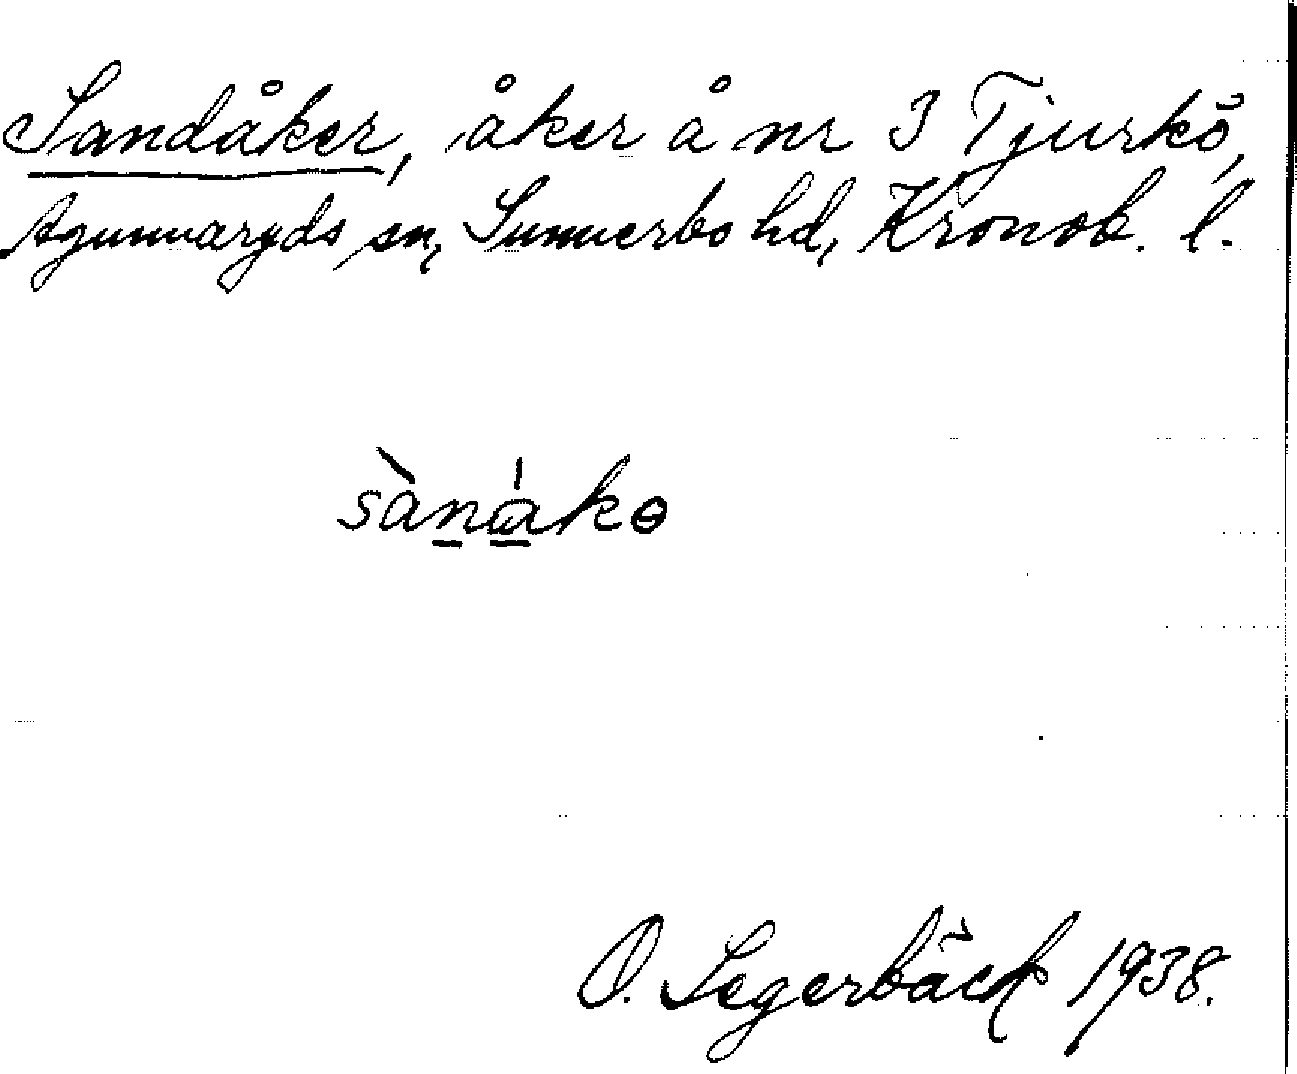 Sandåker, åker å nr 3 Tjurkö,
Agunnaryds sn, Sunnerbo hd, Kronob. l.
sànákɵ
O. Segerbäck 1938.